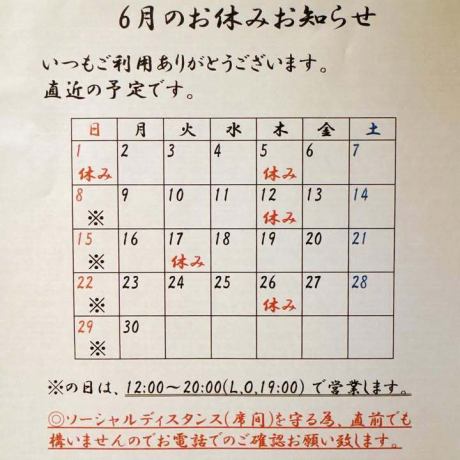 6月のお休みお知らせ
いつもご利用ありがとうございます。
直近の予定です。
日 月 火 水 木 金 土
1 2 3 4 5 6 7
休み 休み
8 9 10 11 12 13 14
※ 休み
15 16 17 18 19 20 21
※ 休み
22 23 24 25 26 27 28
※ 休み
29 30
※
※の日は、12:00〜20:00(L,O,19:00) で営業します。
◎ソーシャルディスタンス(席間)を守る為、直前でも
構いませんのでお電話でのご確認お願い致します。